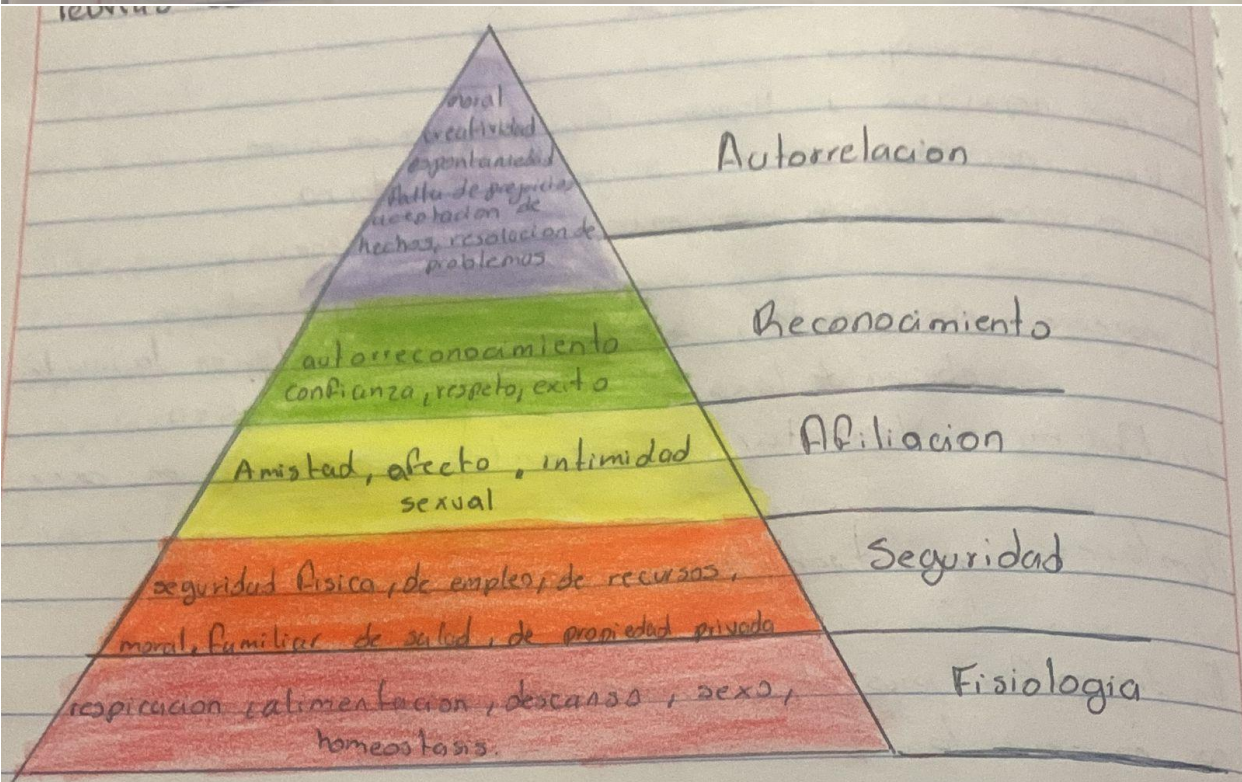 moral
creatividad
espontaneidad
falta de prejuicios
aceptacion de
hechos, resolucion de
problemas
Autorrelacion
autorreconocimiento
confianza, respeto, exito
Reconocimiento
Amistad, afecto, intimidad
sexual
Afiliacion
seguridad fisica, de empleo, de recursos,
moral, familiar de salud, de propiedad privada
Seguridad
respiracion, alimentacion, descanso, sexo,
homeostasis.
Fisiologia